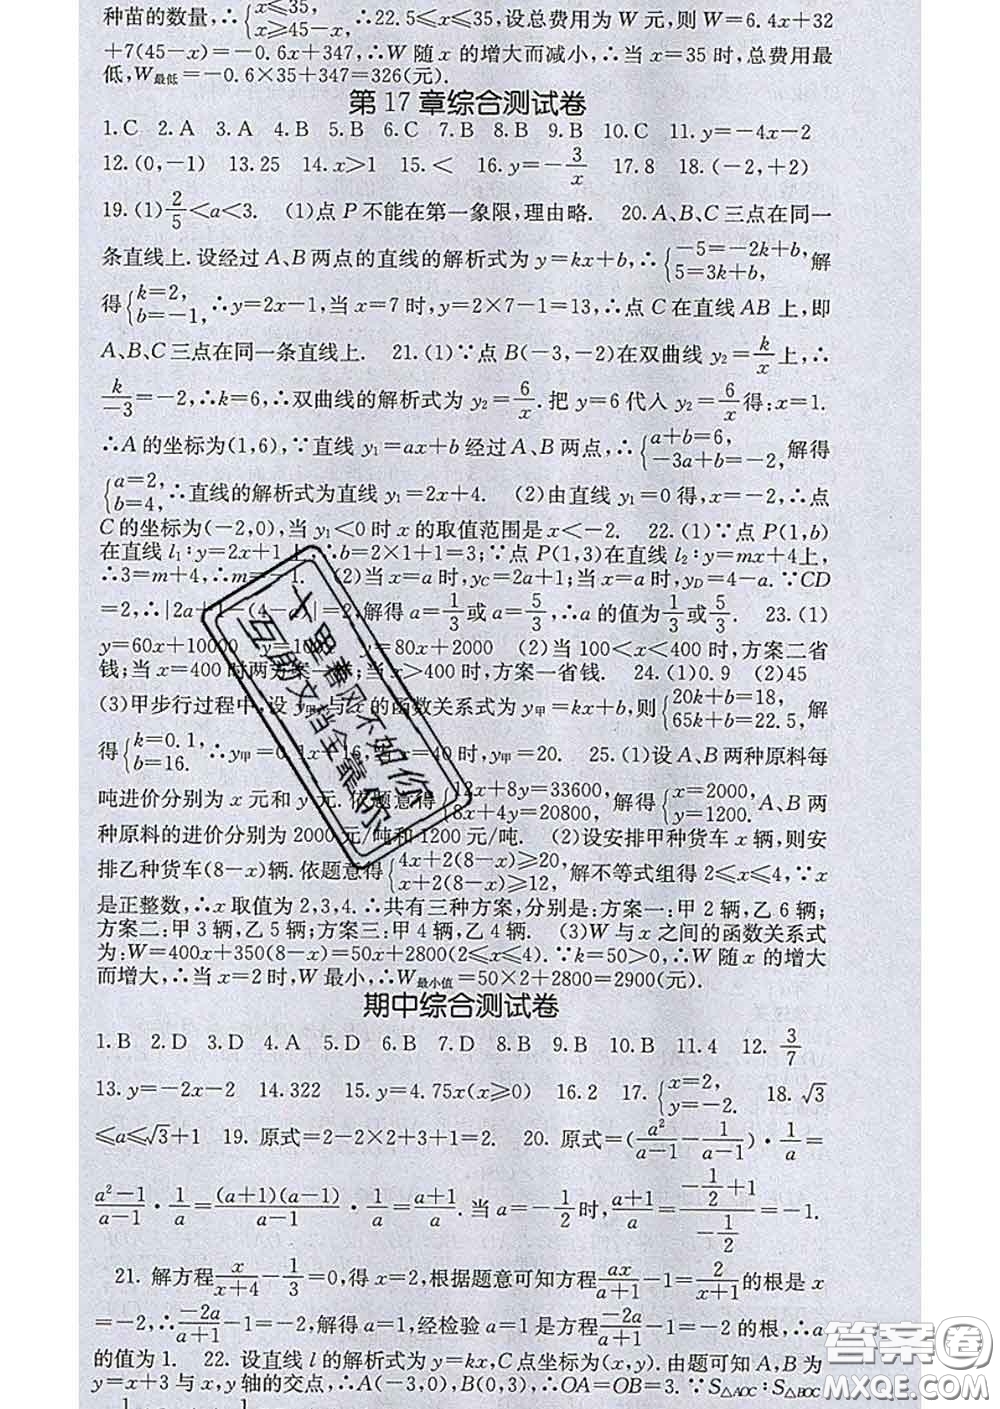 种苗的数量,∴{x≤35, x≥45-x, ∴22.5≤x≤35,设总费用为 W 元,则 W=6.4x+32
+7(45-x)=-0.6x+347,∴W 随 x 的增大而减小,∴当 x=35 时,总费用最
低,W最低=-0.6×35+347=326(元).
第 17 章综合测试卷
1.C 2.A 3.A 4.B 5.B 6.C 7.B 8.B 9.B 10.C 11.y=-4x-2
12.(0,-1) 13.25 14.x>1 15.< 16.y=-3/x 17.8 18.(-2,+2)
19.(1)2/5<a<3. (1)点 P 不能在第一象限,理由略. 20.A、B、C 三点在同一
条直线上.设经过 A、B 两点的直线的解析式为 y=kx+b,∴{-5=-2k+b, 5=3k+b, 解
得{k=2, b=-1, ∴y=2x-1,当 x=7 时,y=2×7-1=13,∴点 C 在直线 AB 上,即
A、B、C 三点在同一条直线上. 21.(1)∵点 B(-3,-2)在双曲线 y₂=k/x 上,∴
k/-3=-2,∴k=6,∴双曲线的解析式为 y₂=6/x.把 y=6 代入 y₂=6/x 得:x=1.
∴A 的坐标为(1,6),∵直线 y₁=ax+b 经过 A、B 两点,∴{a+b=6, -3a+b=-2, 解得
{a=2, b=4, ∴直线的解析式为直线 y₁=2x+4. (2)由直线 y₁=0 得,x=-2,∴点
C 的坐标为(-2,0),当 y₁<0 时 x 的取值范围是 x<-2. 22.(1)∵点 P(1,b)
在直线 l₁:y=2x+1 上,∴b=2×1+1=3;∵点 P(1,3)在直线 l₂:y=mx+4上,
∴3=m+4,∴m=-1. (2)当 x=a 时,yC=2a+1;当 x=a 时,yD=4-a.∵CD
=2,∴|2a+1-(4-a)|=2,解得 a=1/3 或 a=5/3,∴a 的值为1/3或5/3. 23.(1)
y=60x+10000 y=100x y=80x+2000 (2)当 100<x<400 时,方案二省
钱;当 x=400 时两方案一样;当 x>400 时,方案一省钱. 24.(1)0.9 (2)45
(3)甲步行过程中,设 y甲与 x 的函数关系式为 y甲=kx+b,则{20k+b=18, 65k+b=22.5, 解
得{k=0.1, b=16. ∴y甲=0.1x+16,当 x=40 时,y甲=20. 25.(1)设 A、B 两种原料每
吨进价分别为 x 元和 y 元.依题意得{12x+8y=33600, 8x+4y=20800, 解得{x=2000, y=1200. A、B 两
种原料的进价分别为 2000 元/吨和 1200 元/吨. (2)设安排甲种货车 x 辆,则安
排乙种货车(8-x)辆.依题意得{4x+2(8-x)≥20, x+2(8-x)≥12, 解不等式组得 2≤x≤4,∵x
是正整数,∴x 取值为 2,3,4.∴共有三种方案,分别是:方案一:甲 2 辆,乙 6 辆;
方案二:甲 3 辆,乙 5 辆;方案三:甲 4 辆,乙 4 辆. (3)W 与 x 之间的函数关系式
为:W=400x+350(8-x)=50x+2800(2≤x≤4).∵k=50>0,∴W 随 x 的增大
而增大,∴当 x=2 时,W 最小,∴W最小值=50×2+2800=2900(元).
期中综合测试卷
1.B 2.D 3.D 4.A 5.D 6.B 7.D 8.B 9.B 10.B 11.4 12.3/7
13.y=-2x-2 14.322 15.y=4.75x(x≥0) 16.2 17.{x=2, y=-2. 18.√3
≤a≤√3+1 19.原式=2-2×2+3+1=2. 20.原式=(a²/a-1 - 1/a-1)·1/a=
a²-1/a-1·1/a=(a+1)(a-1)/a-1·1/a=a+1/a.当 a=-1/2时,a+1/a=(-1/2+1)/(-1/2)=-1.
21.解方程x/x+4-1/3=0,得 x=2,根据题意可知方程ax/a+1-1=2/x+1的根是 x
=-2,∴-2a/a+1-1=-2,解得 a=1,经检验 a=1 是方程-2a/a+1-1=-2 的根,∴a
的值为 1. 22.设直线 l 的解析式为 y=kx,C 点坐标为(x,y).由题可知 A、B 为
y=x+3 与 x,y 轴的交点,∴A(-3,0),B(0,3),∴OA=OB=3.∵S△AOC:S△BOC
十里春风不如你
互联文档全靠你
答案圈
MXQE.COM